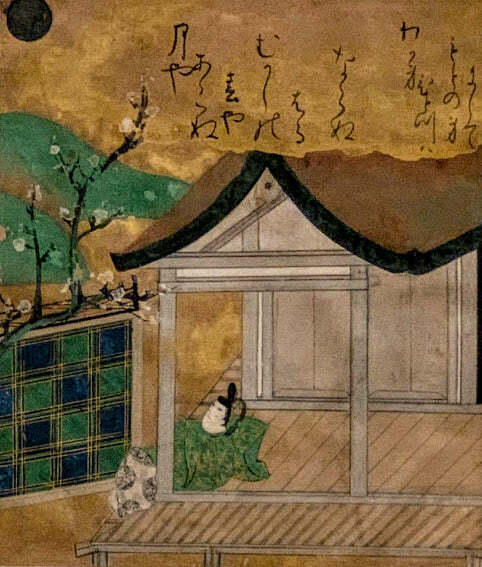 月や
あらぬ
春や
むかしの
はる
ならぬ
わか身
ひとつハ
もとの身
にして